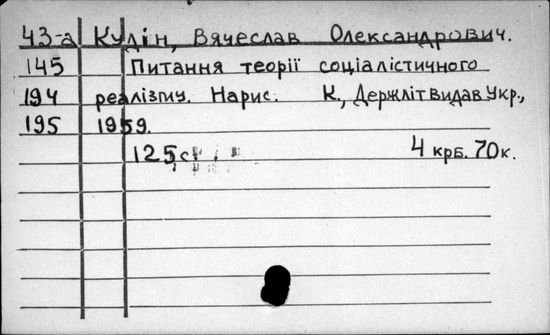 43-а Кудін, Вячеслав Олександрович.
145 Питання теорії соціалістичного
194 реалізму. Нарис. К., Держлітвидав Укр.,
195 1959.
125 ст. 4 крб. 70к.